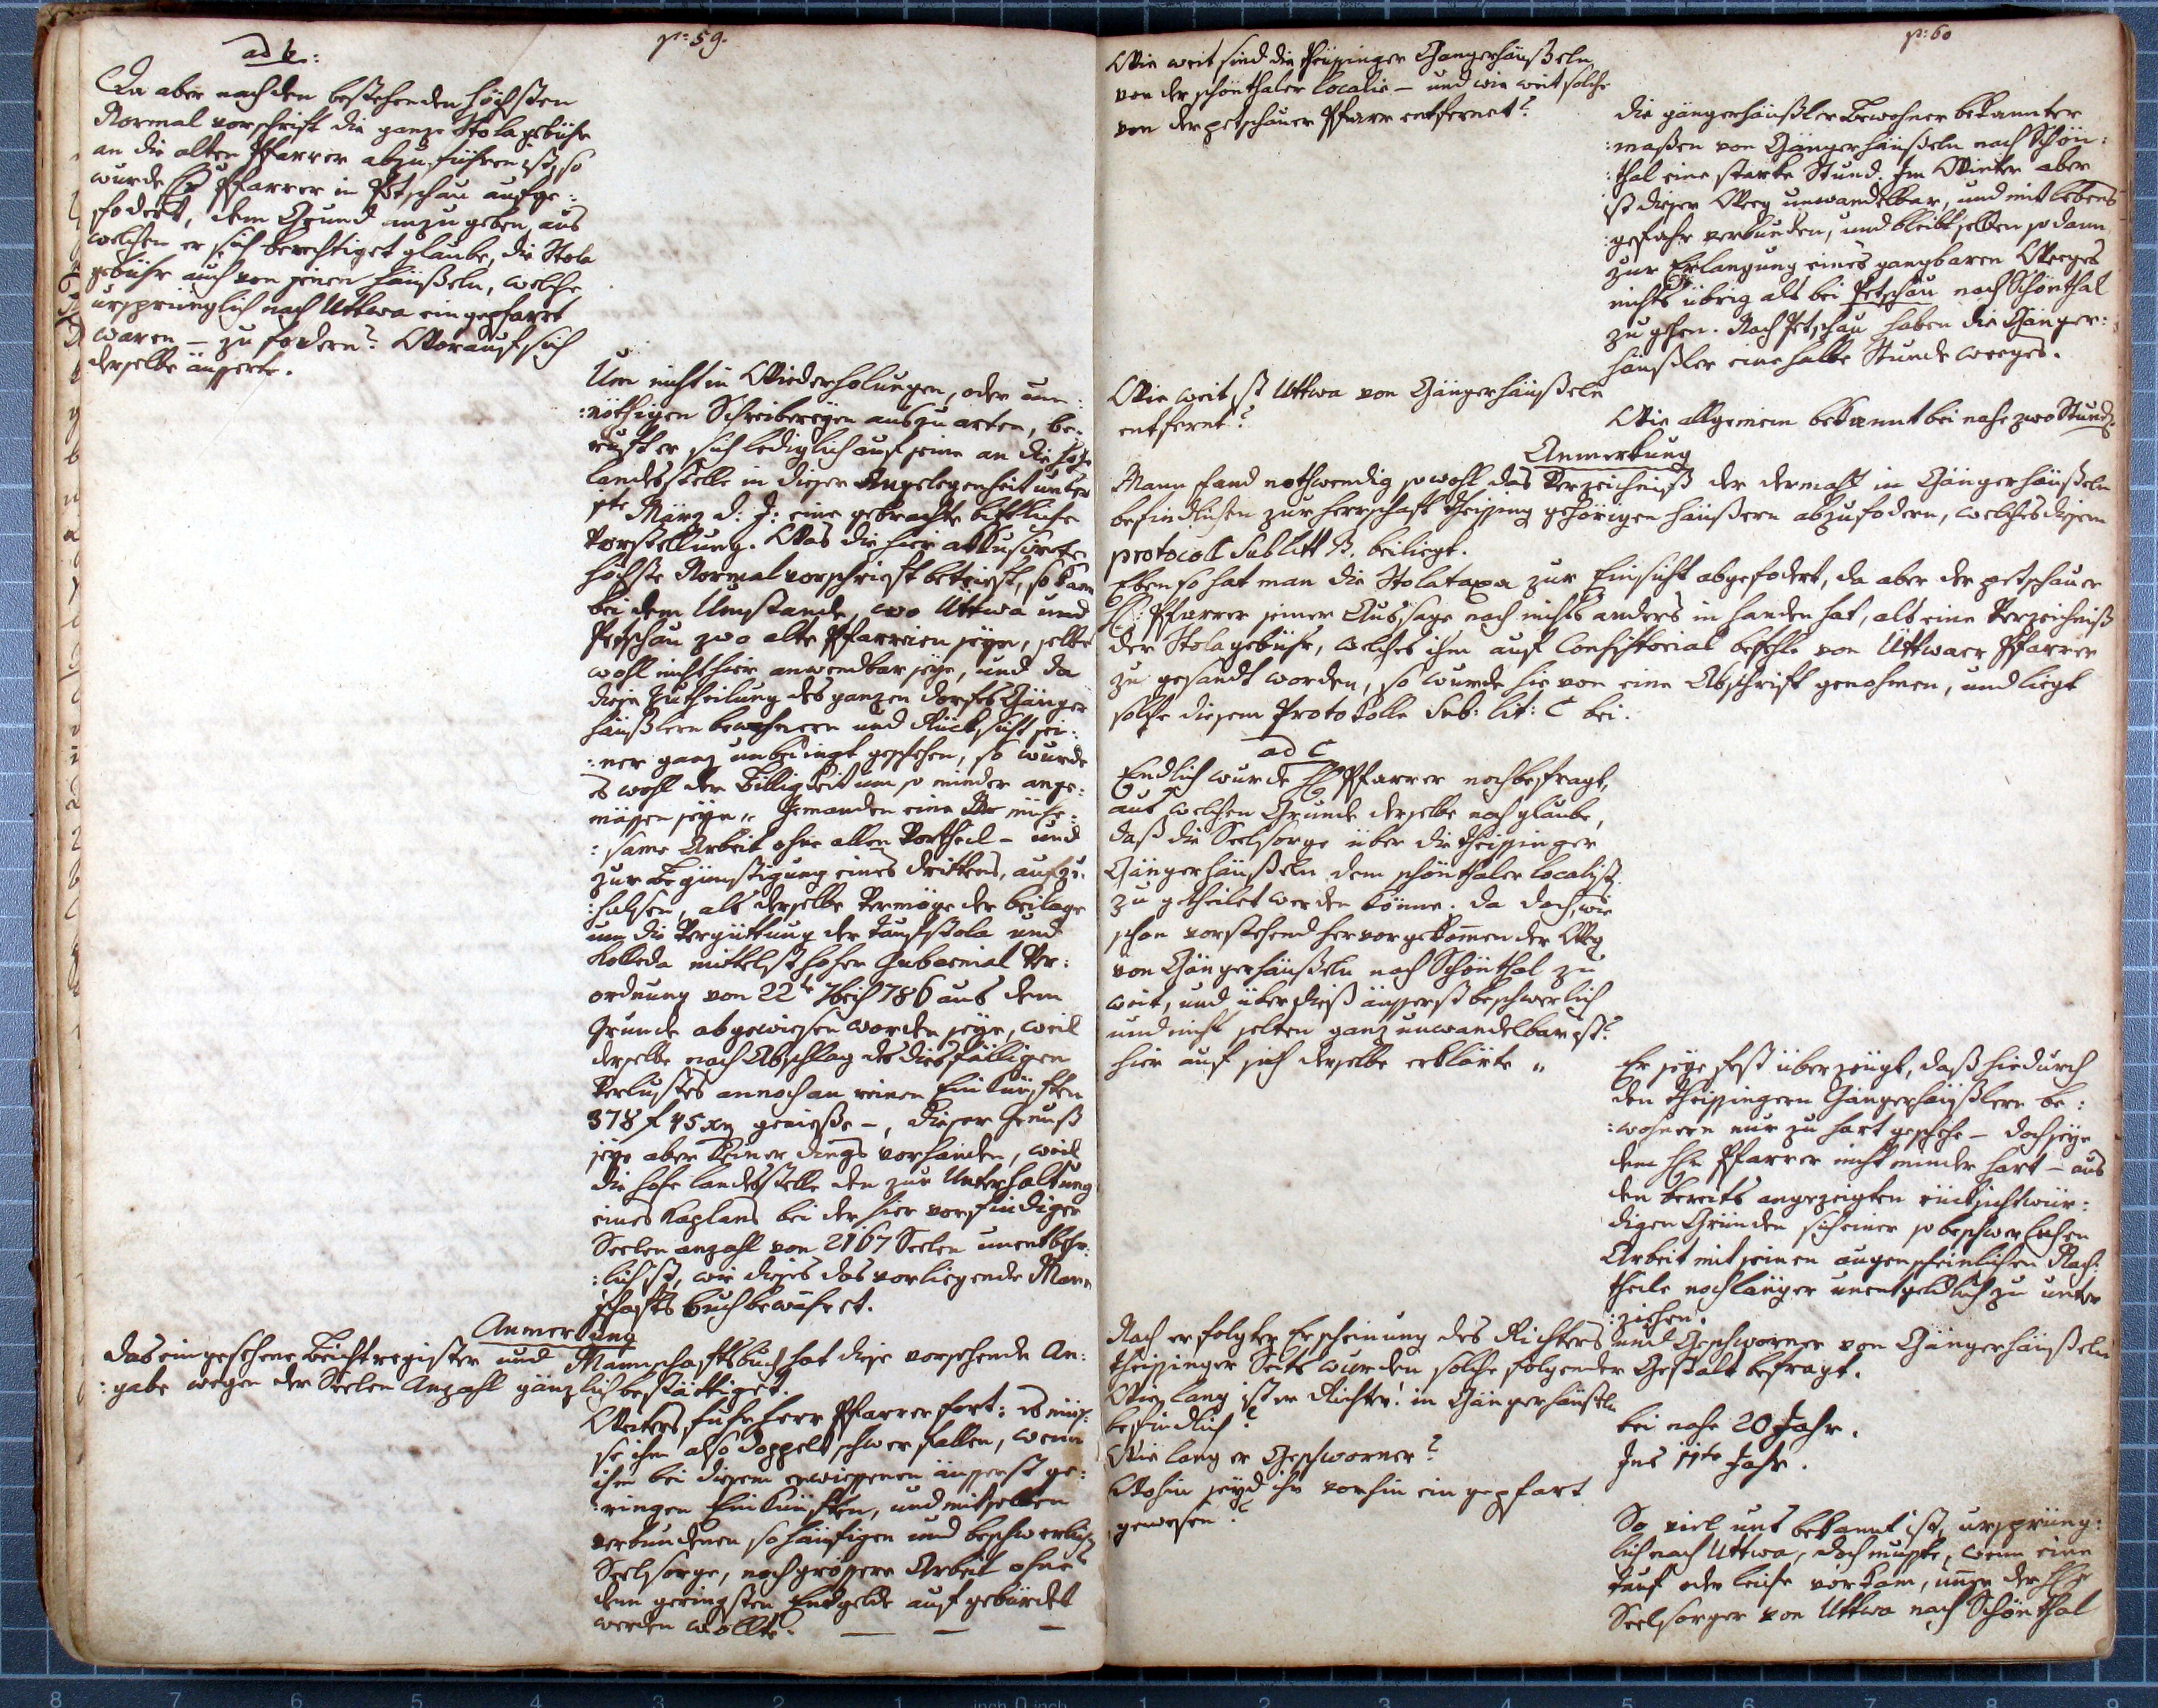 p: 59.
ad b:
Da aber nach den bestehenden höchsten
Normal vorschrift die ganze Stolagebühr
an die alten Pfarrer abzuführen ist, so
wurde H Pfarrer in Petschau aufge:
fodert, dem Grund anzugeben, aus
welchen er sich berechtiget glaube, die Stola
gebühr auch von jenen Häußeln, welche
ursprünglich nach Uttwa eingepfarrt
waren – zu fodern? Worauf sich
derselbe äusserte.
Um nicht in Wiederholungen, oder un:
:nöthigen Schreibereyen auszuarten, be:
ruft er sich lediglich auf seine an die hohe
Landesstelle in dieser Angelegenheit unter
März d: J: eine gebrachte bittliche
Vorstellung. Was die hier
höchste Normalvorschrift betrieft, so kann
bei dem Umstande, wo Uttwa und
Petschau zwo alte Pfarreien seyn, selbe
wohl nicht hier anwendbar seye, und da
diese Zutheilung des ganzen Dorfes Gänger
häußlern bewohnern und Rücksicht sei:
:ner ganz unbedingt geschehen, so wurde
es wohl der Billigkeit um so minder ange:
mässen seyn „ Jemanden eine mühe:
:same Arbeit ohne allen Vortheil – und
zur Begünstigung eines drittens, aufzu:
:halsen, als derselbe Vermöge der beilage
um die Vergüttung der Taufstola und
Kolleda mittelst hoher Gubernial Ver:
ordnung von 22te 7beis 786 aus dem
Grunde abgewiesen worden seye, weil
derselbe nach Abschlag des diesfälligen
Verlustes annoch an reinen Einkünften
378 f 45 xr genieße –, dieser Genuß
seye aber keiner dings vorhanden, weil
die hohe Landesstelle den zur Unterhaltung
eines Kaplans bei der hier vorfindiger
Seelen anzahl von 2167 Seelen unentbehr:
:lich ist, wie dieses das vorliegende Mann
schafts buch bewähret.
Anmerkung
Das eingesehene Beichtregister und Mannschaftsbuch hat diese vorsehende An:
:gabe wegen der Seelen Anzahl gänzlich bestättiget.
Weiters fuhr Herr Pfarrer fort: es müs:
se ihm also doppelt schwer fallen, wenn
ihm bei diesem erwiesenen äusserst ge:
:ringen Einkünften, und mit selben
verbundenen so häufigen und beschwerlich
Seelsorge, noch grössere Arbeit ohne
dem geringsten Entgelde auf gebürdet
werden wollte. — — —
p: 60
Wie weit sind die theisinger Gangerhäußeln
von der schönthaler Localie – und wie weit solche
von der petschauer Pfarr entfernet?
Die gängerhäußler Bewohner bekannter
:maßen von Gängerhäußeln nach Schön:
:thal eine starke Stund. Im Winter aber
ist dieser Weeg unwandelbar, und mit lebens
:gefahr verbunden, und bleibt selben sodann
zur Erlangung eines gangbaren Weeges
nichts übrig als bei Petschau nach Schönthal
zu gehen. Nach Petschau haben die Gänger:
häußler eine halbe Stunde weeges.
Wie weit ist Uttwa von Gängerhäußeln
entfernt?
Wie allgemein bekannt bei nahe zwo Stund
Anmerkung
Mann fand nothwendig sowohl das Verzeichniß der dermahl in Gängerhäußeln
befindlichen zur Herrschaft Theising gehörigen Häußern abzufodern, welches diesem
protocoll Sub Litt B. beiliegt.
Eben so hat man die Stolataxa zur Einsicht abgefodert, da aber der petschauer
H: Pfarrer seiner Aussage nach nichts anders in Handen hat, als eine Verzeichniß
der Stolagebühr, welches ihm auf Consistorial befehle von Uttwaer Pfarrer
zu gesandt worden, so wurde hie von eine Abschrift genohmen, und liegt
solche diesem Protokolle Sub: lit: C bei.
ad C
Endlich wurde H Pfarrer noch befragt,
aus welchen Grunde derselbe noch glaube,
daß die Seelsorge über die theisinger
Gängerhäußeln dem schönthaler Localist
zu getheilet werden könne. Da doch, wie
schon vorstehend hervorgekommen der Weg
von Gängerhäußeln nach Schönthal zu
weit, und über dieß äusserst beschwerlich
und nicht selten ganz unwandelbar ist?
Hier auf sich derselbe erklärte „
Er seye fest überzeugt, daß hiedurch
den theisingern Gängerhäußlern be:
:wohnern nur zu hart geschehe – doch seye
dem H Pfarrer nicht minder hart – aus
den bereits angezeigten rücksichtwür:
digen Gründen sich einer so beschwerlichen
Arbeit mit seinen augenscheinlichen Nach:
theile noch länger unentgeldlich zu unter
:ziehen.
Nach erfolgter Erscheinung des Richters und Geschworner von Gängerhäußeln
theisinger Seits wurden solche folgender Gestalt befragt.
Wie lang ist er Richter in Gängerhäußeln
befindlich?
bei nahe 20 Jahr.
Wie lang er Geschworner?
Ins 11te Jahr.
Wohin seyd ihr vorhin ein gepfart
gewesen?
So viel uns bekannt ist, ursprüng:
lich nach Uttwa, doch muste, wenn eine
Tauf oder leiche vorkam, der H
Seelsorger von Uttwa nach Schönthal